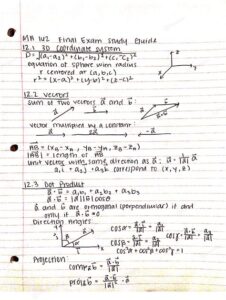 MA 142 Final Exam Study Guide
12.1 3D coordinate system
D = √(a₁-a₂)² + (b₁-b₂)² + (c₁-c₂)²
equation of sphere with radius
r centered at (a,b,c)
r² = (x-a)² + (y-b)² + (z-c)²
12.2 vectors
sum of two vectors a⃗ and b⃗:
vector multiplied by a constant:
AB⃗ = (x_B - x_A, y_B - y_A, z_B - z_A)
|AB⃗| = length of AB⃗
unit vector with same direction as a⃗:
a₁i + a₂j + a₃k correspond to (x, y, z)
12.3 Dot Product
a⃗·b⃗ = a₁b₁ + a₂b₂ + a₃b₃
a⃗·b⃗ = |a⃗||b⃗|cosθ
a⃗ and b⃗ are orthogonal (perpendicular) if and
only if a⃗·b⃗ = 0
Direction Angles:
cos²α + cos²β + cos²γ = 1
Projection:
comp
proj